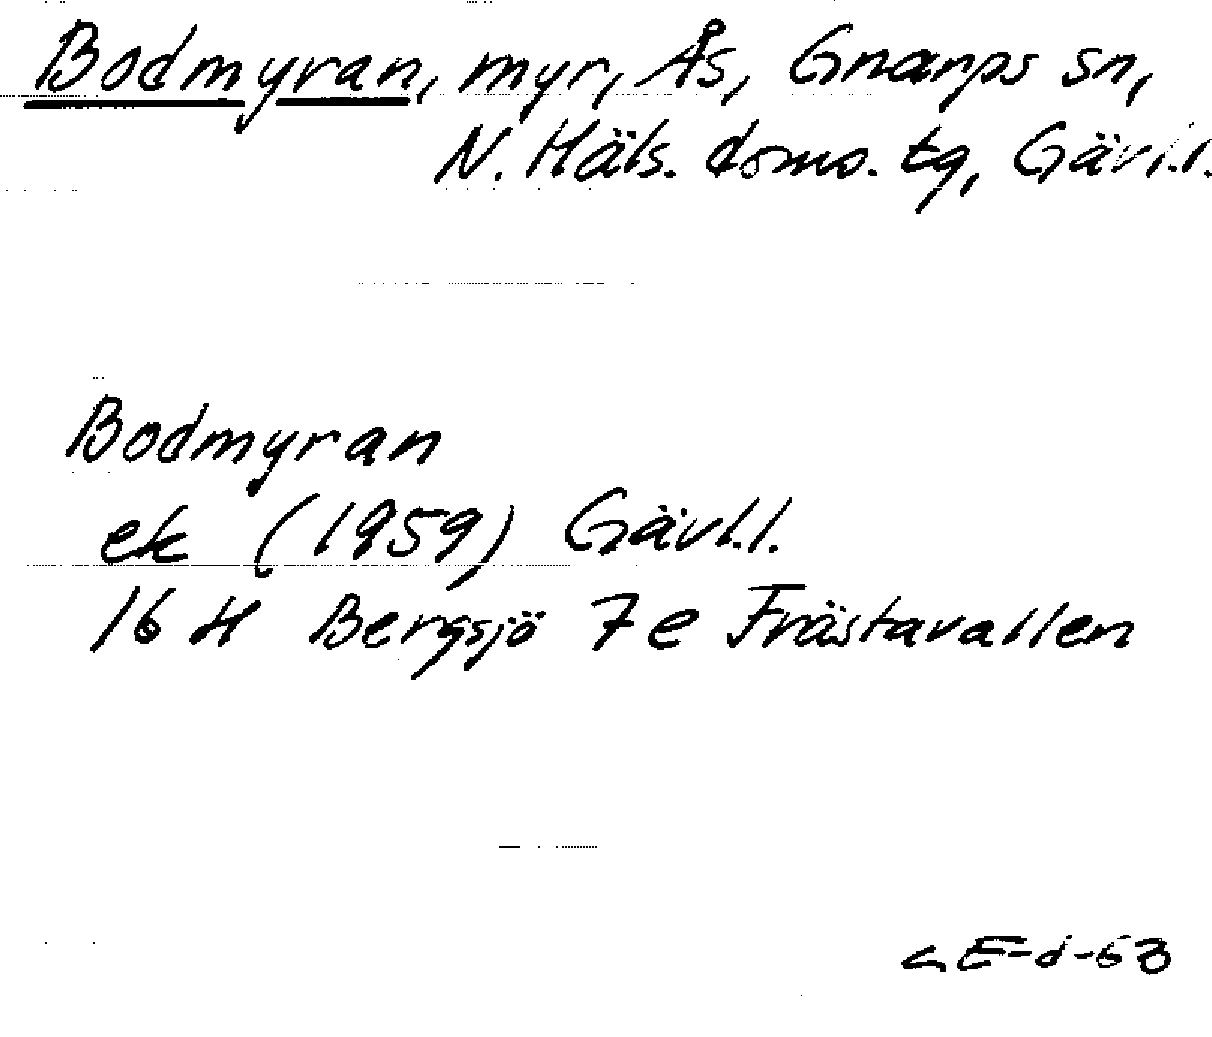 Bodmyran, myr, Ås, Gnarps sn,
N. Häls. doms. tg, Gävl.l.
Bodmyran
ek (1959) Gävl.l.
16 H Bergsjö 7e Frästavallen